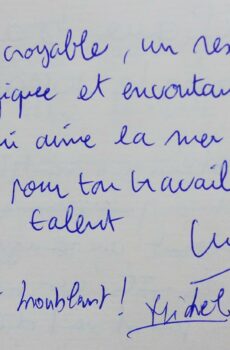 croyable, un res
gique et envoutan
ui aime la mer
pour ton travail
talent
troublant! Michel